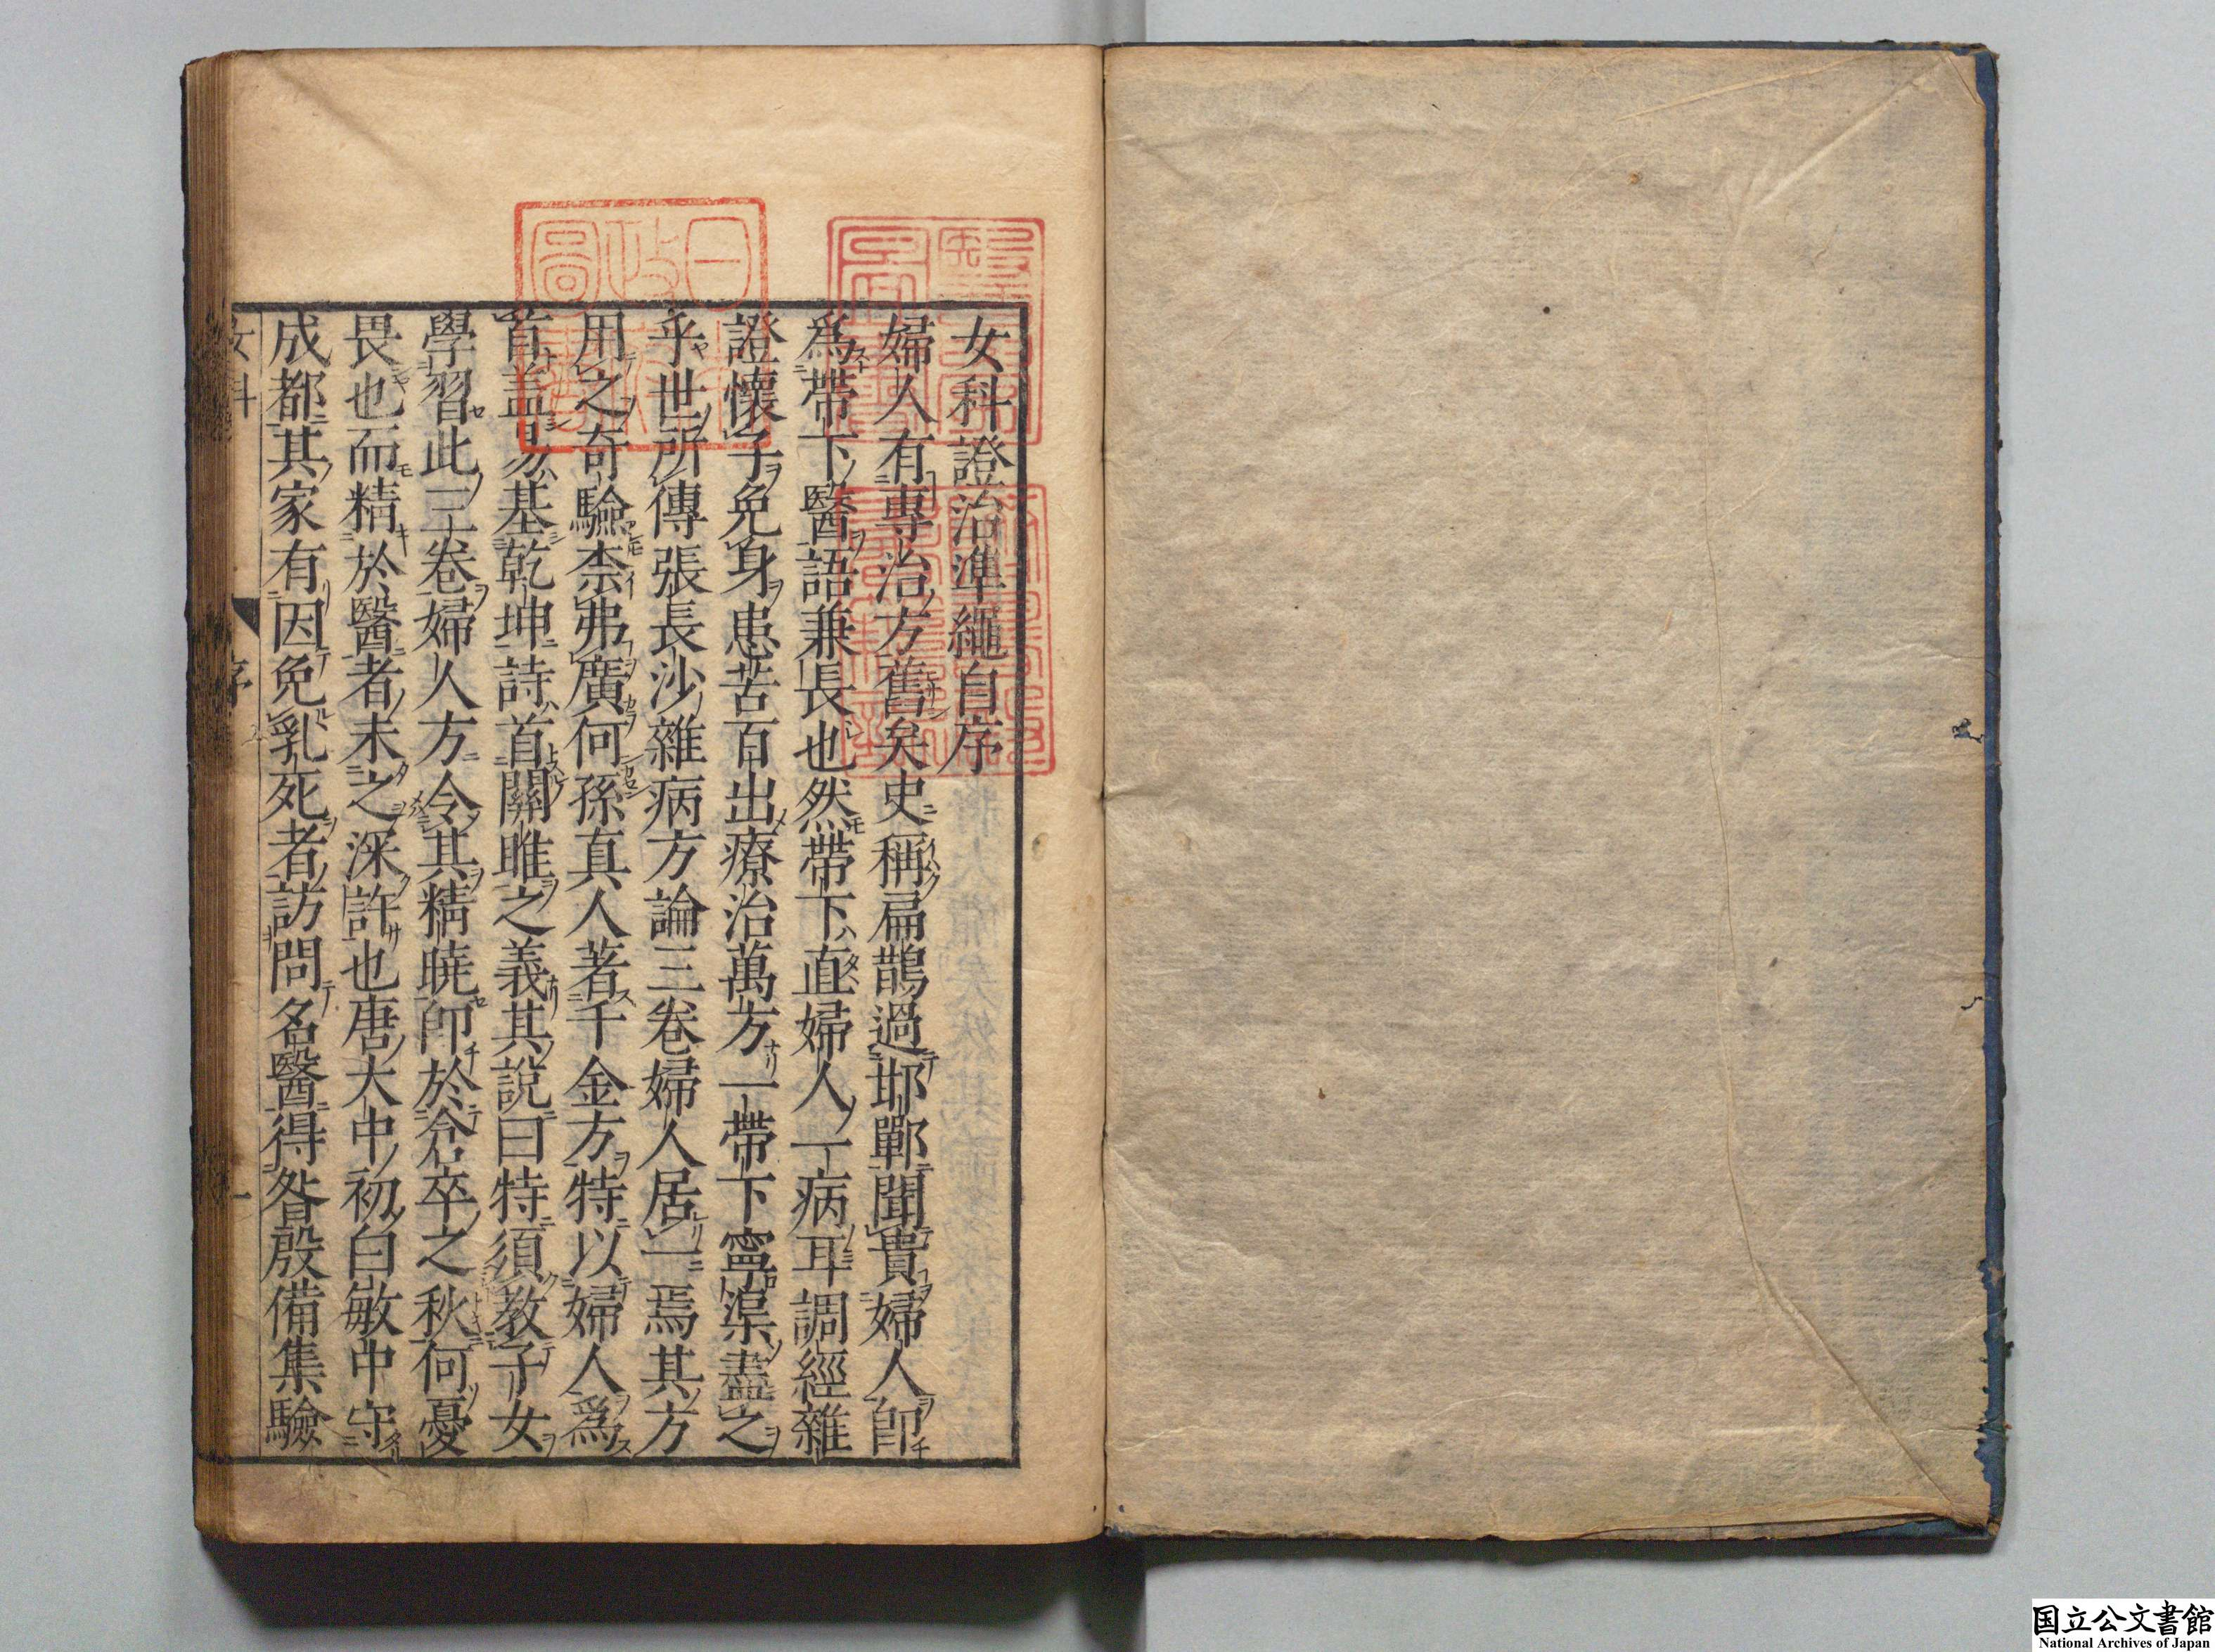 女科證治準繩自序
婦人有專治方舊矣史稱扁鵲過邯鄲聞貴婦人即
爲帶下醫語兼長也然帶下直婦人一病耳調經雜
證懷子免身患苦百出療治萬方一帶下寧渠盡之
乎世所傳張長沙雜病方論三卷婦人居一焉其方
用之奇驗柰弗廣何孫真人著千金方特以婦人爲
首盖易基乾坤詩首關雎之義其說曰特須教子女
學習此三卷婦人方令其精曉即於倉卒之秋何憂
畏也而精於醫者未之深許也唐大中初白敏中守
成都其家有因免乳死者訪問名醫得昝殷備集驗
女科
序
一
国立公文書館
National Archives of Japan